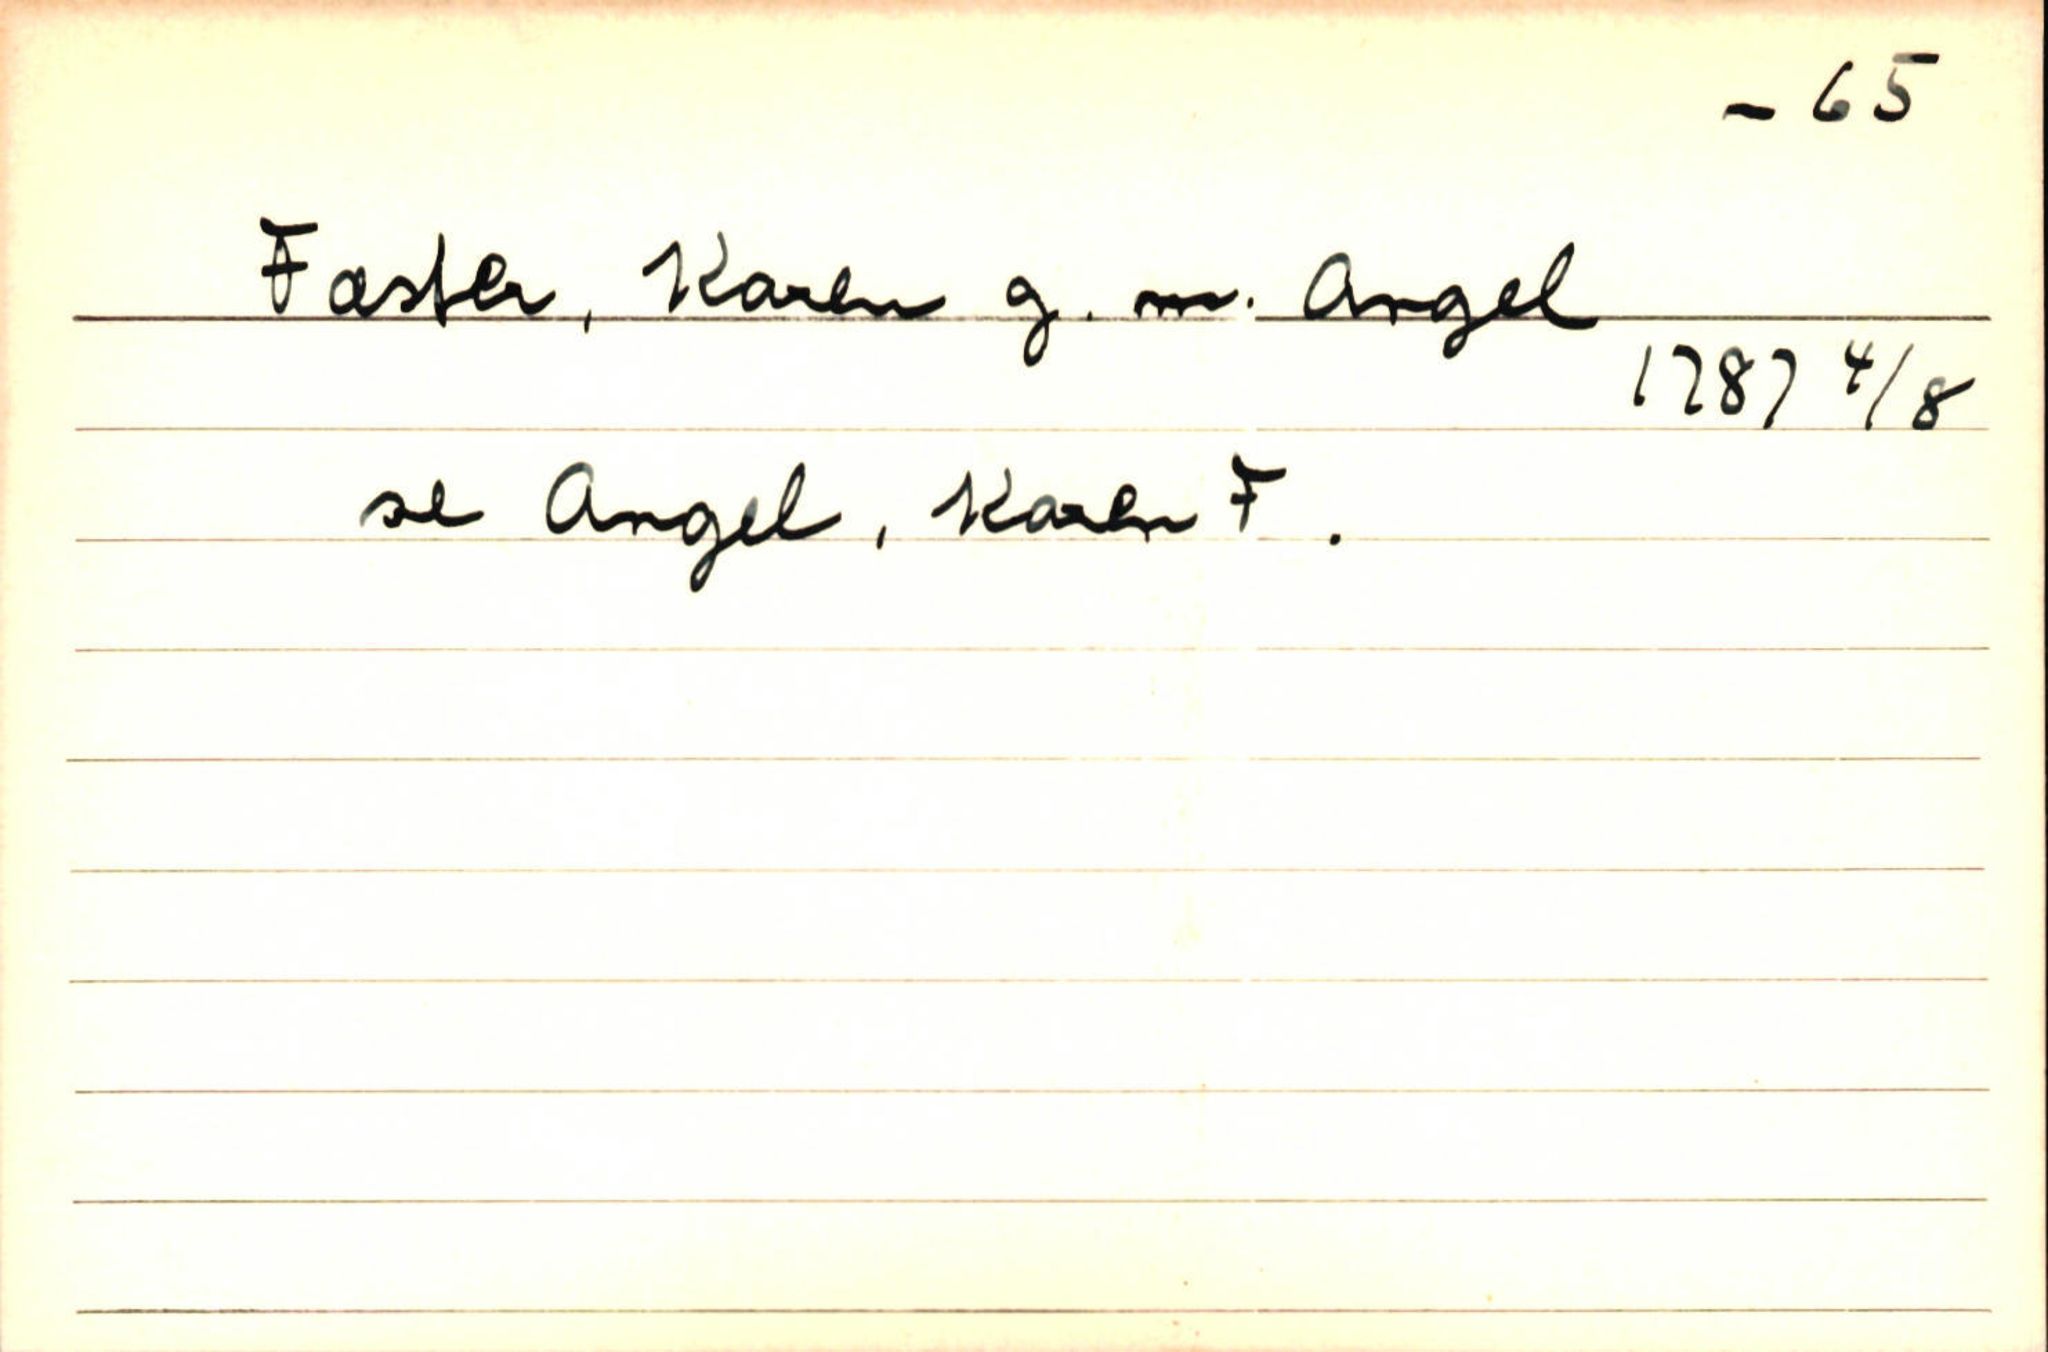 - 65
Fæster, Karen g. m. Angel
1787 4/8
se Angel, Karen F.